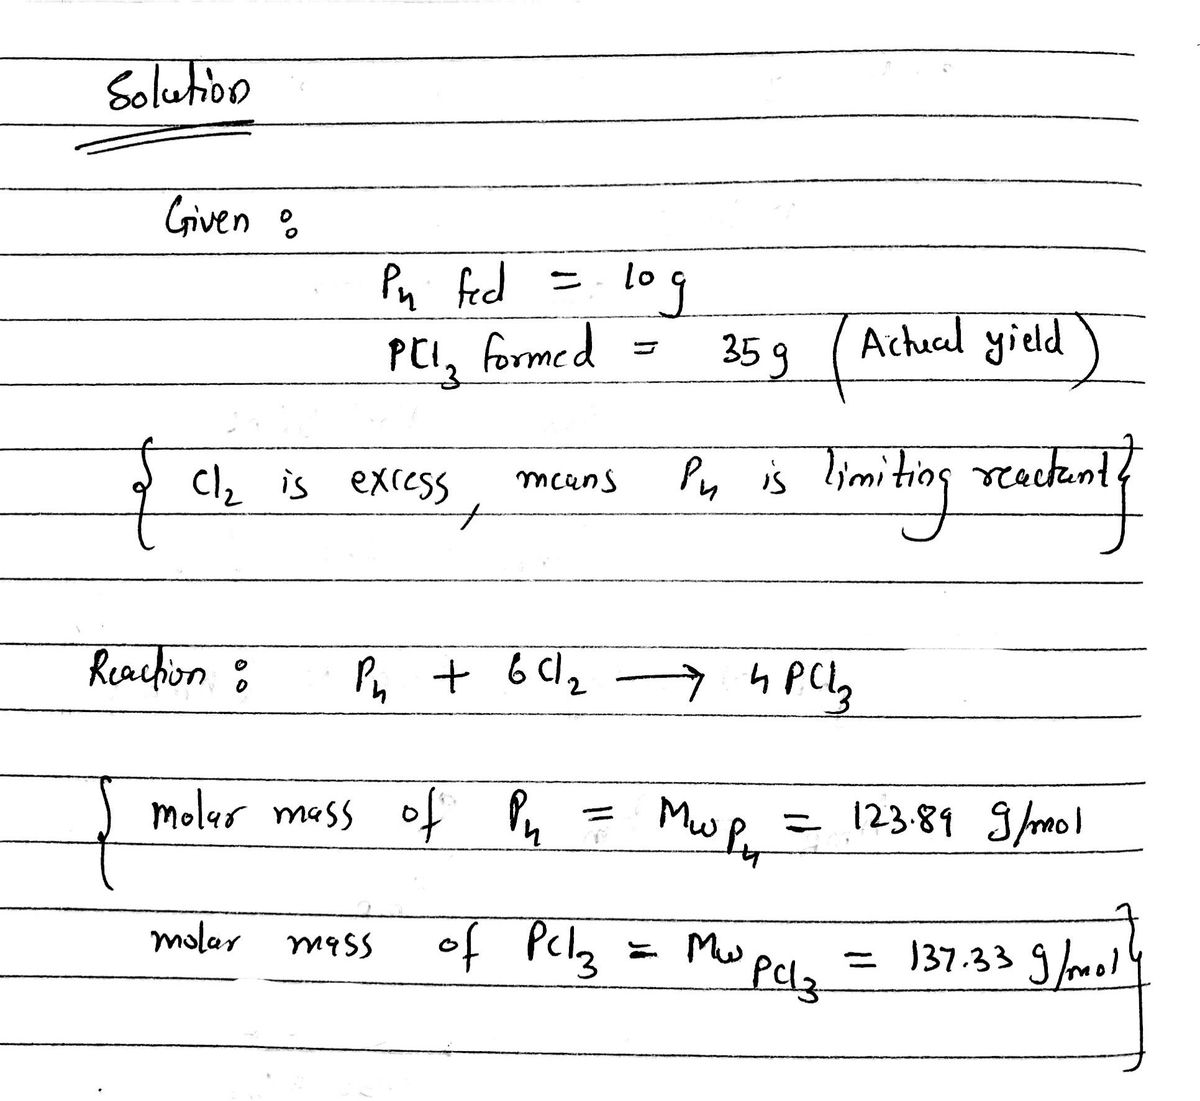 Solution
Given :
P₄ fed = 10 g
PCl₃ formed = 35 g (Actual yield)
{ Cl₂ is excess, means P₄ is limiting reactant }
Reaction : P₄ + 6 Cl₂ ⟶ 4 PCl₃
{ molar mass of P₄ = Mw P₄ = 123.89 g/mol
molar mass of PCl₃ = Mw PCl₃ = 137.33 g/mol }